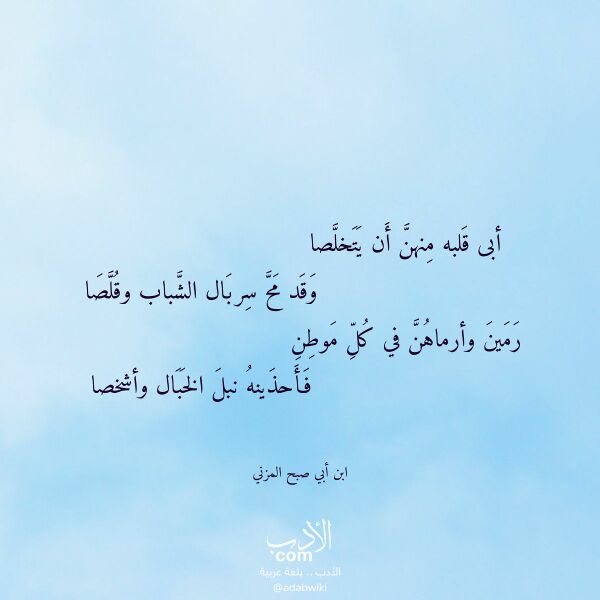 أبى قَلبه مِنهنَّ أَن يَتَخلَّصا
وَقَد مَحَّ سِربَال الشَّباب وقُلَّصَا
رَمَينَ وأرماهُنَّ في كُلِّ مَوطِنِ
فَأَحذَينهُ نبلَ الخَبَال وأشخصا
ابن أبي صبح المزني
الأدب
com
الأدب .. بلغة عربية
@adabwiki